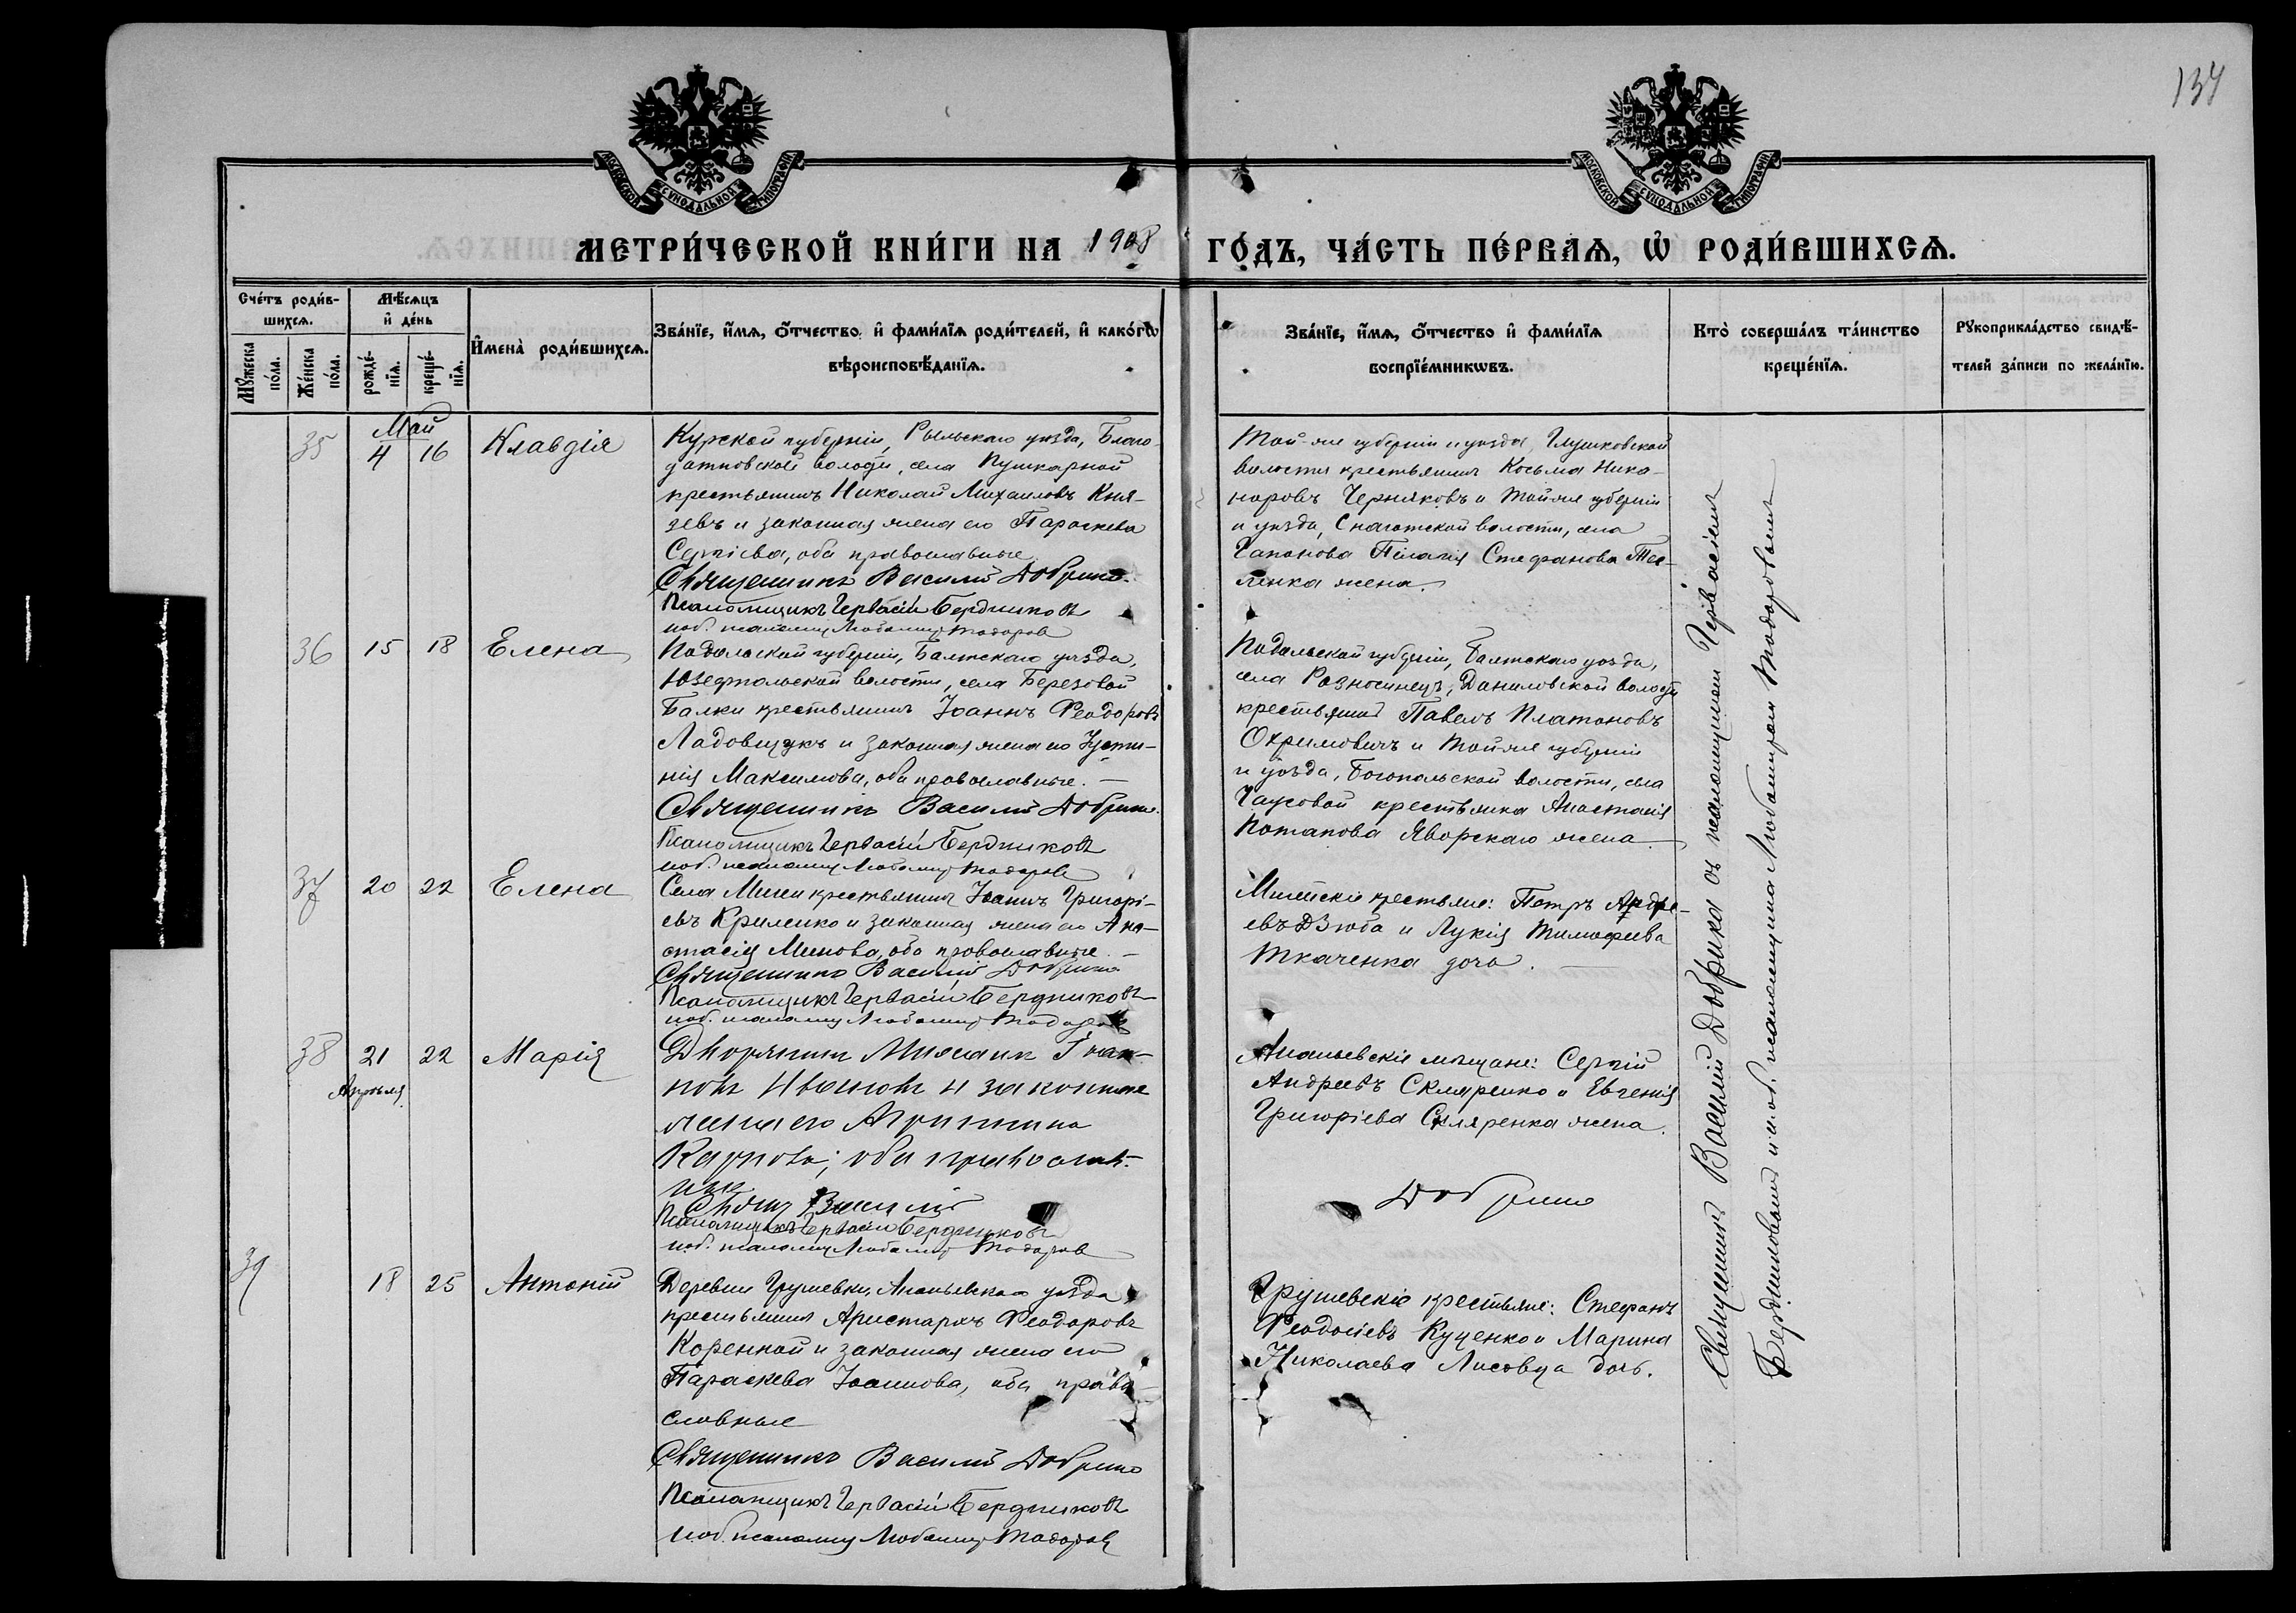 134
МОСКОВСКОЙ СѴНОДАЛЬНОЙ ТИПОГРАФІИ
МОСКОВСКОЙ СѴНОДАЛЬНОЙ ТИПОГРАФІИ
МЕТРИ́ЧЕСКОЙ КНИ́ГИ НА 1908 ГО́ДЪ, ЧА́СТЬ ПЕ́РВАѦ, Ѡ҆ РОДИ́ВШИХСѦ.
Сче́тъ роди́в-
шихсѧ.
Мѹ́жеска
по́ла.
Же́нска
по́ла.
Мѣ́сѧцъ
и҆ де́нь
рожде́-
нїѧ.
креще́-
нїѧ.
И҆мена̀ роди́вшихсѧ.
Зва́нїе, и҆́мѧ, ѻ҆́тчество и҆ фами́лїѧ роди́телей, и҆ како́гѡ
вѣроисповѣ́данїѧ.
Зва́нїе, и҆́мѧ, ѻ҆́тчество и҆ фами́лїѧ
воспрїе́мникѡвъ.
Кто̀ соверша́лъ та́инство
креще́нїѧ.
Рꙋкоприкла́дство свидѣ́-
телей за́писи по жела́нїю.
Май
35 4 16 Клавдія
Курской губерніи, Рыльскаго уѣзда, Благо-
датновской волости, села Пушкарной
крестьянинъ Николай Михаиловъ Кня-
зевъ и законная жена его Параскева
Сергіева, оба православные
Священникъ Василій Добрико.
Псаломщикъ Гервасій Бердниковъ
и.об. псаломщ Любомир Тодоров
Той-же губерніи и уѣзда, Глушковской
волости крестьянинъ Косьма Ника-
норовъ Черняковъ и той же губерніи
и уѣзда, Снагостской волости, села
Гапонова Пелагія Стефанова Тес-
ленка жена.
36 15 18 Елена
Подольской губерніи, Балтскаго уѣзда,
Юзефпольской волости, села Березовой
Балки крестьянинъ Іоаннъ Ѳеодоровъ
Ладовщукъ и законная жена его Іусти-
нія Максимова, оба православные. —
Священникъ Василій Добрико.
Псаломщикъ Гервасій Бердниковъ
и.об. псаломщ Любомир Тодоров
Подольской губерніи, Балтскаго уѣзда,
села Розносинецъ, Даниловской волости
крестьянинъ Павелъ Платоновъ
Охримовичъ и той же губерніи
и уѣзда, Богопольской волости, села
Чаусовой крестьянка Анастасія
Потапова Яворскаго жена
37 20 22 Елена
Села Мигеи крестьянинъ Іоаннъ Григорі-
евъ Криленко и законная жена его Ана-
стасія Минова, оба православные —
Священникъ Василій Добрико
Псаломщикъ Гервасій Бердниковъ
и.об. псаломщ Любомир Тодоров
Мигейскіе крестьяне: Петръ Андре-
евъ Дзюба и Лукія Тимофеева
Ткаченка дочь. —
38 21 22 Марія
Апрѣля
Дворянинъ Михаилъ Іоан-
новъ Ивановъ и законная
жена его Агриппина
Карпова; оба православ-
ные
Свящ. Василій Добрико
Псаломщикъ Гервасій Бердниковъ
и.об. псаломщ Любомир Тодоров
Ананьевскіе мѣщане: Сергій
Андреевъ Скляренко и Евгенія
Григоріева Скляренка жена.
39 18 25 Антоній
Деревни Грушевки, Ананьевскаго уѣзда
крестьянинъ Аристархъ Ѳеодоровъ
Коренной и законная жена его
Параскева Іоаннова, оба право-
славные
Священникъ Василій Добрико
Псаломщикъ Гервасій Бердниковъ
и.об. псаломщ Любомир Тодоров
Грушевскіе крестьяне: Стефанъ
Ѳеодосіевъ Куценко и Марина
Николаева Лисовца дочь.
Священникъ Василій Добрико съ псаломщикомъ Гервасіемъ
Бердниковымъ и и.об. псаломщика Любомиромъ Тодоровымъ